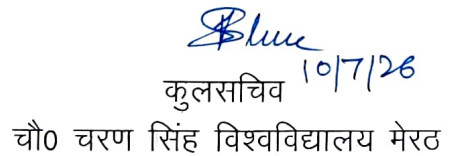 10/7/26
कुलसचिव
चौ0 चरण सिंह विश्वविद्यालय मेरठ